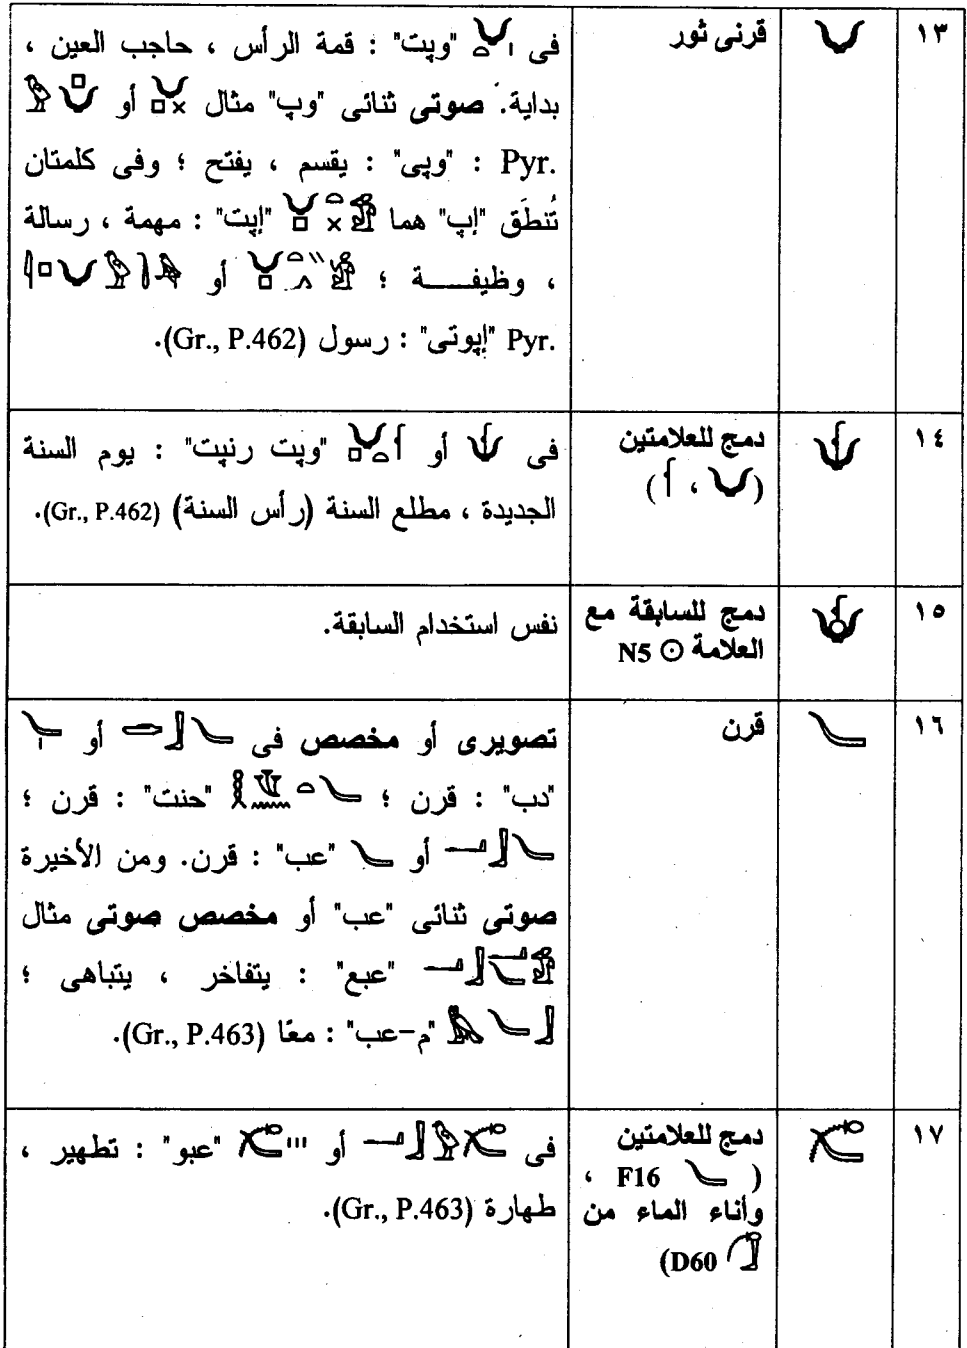 ١٣
قرنى ثور
فى "وپت" : قمة الرأس ، حاجب العين ،
بداية. صوتى ثنائى "وپ" مثال أو
Pyr. : "وپى" : يقسم ، يفتح ؛ وفى كلمتان
تُنطَق "إپ" هما "إپت" : مهمة ، رسالة
، وظيفة ؛ أو
Pyr. "إپوتى" : رسول (Gr., P.462).
١٤
دمج للعلامتين
( ، )
فى أو "وپت رنپت" : يوم السنة
الجديدة ، مطلع السنة (رأس السنة) (Gr., P.462).
١٥
دمج للسابقة مع
العلامة ⊙ N5
نفس استخدام السابقة.
١٦
قرن
تصويرى أو مخصص فى أو
"دب" : قرن ؛ "حنت" : قرن ؛
أو "عب" : قرن. ومن الأخيرة
صوتى ثنائى "عب" أو مخصص صوتى مثال
"عبع" : يتفاخر ، يتباهى ؛
"م-عب" : معًا (Gr., P.463).
١٧
دمج للعلامتين
( F16 ،
وأناء الماء من
D60)
فى أو "عبو" : تطهير ،
طهارة (Gr., P.463).